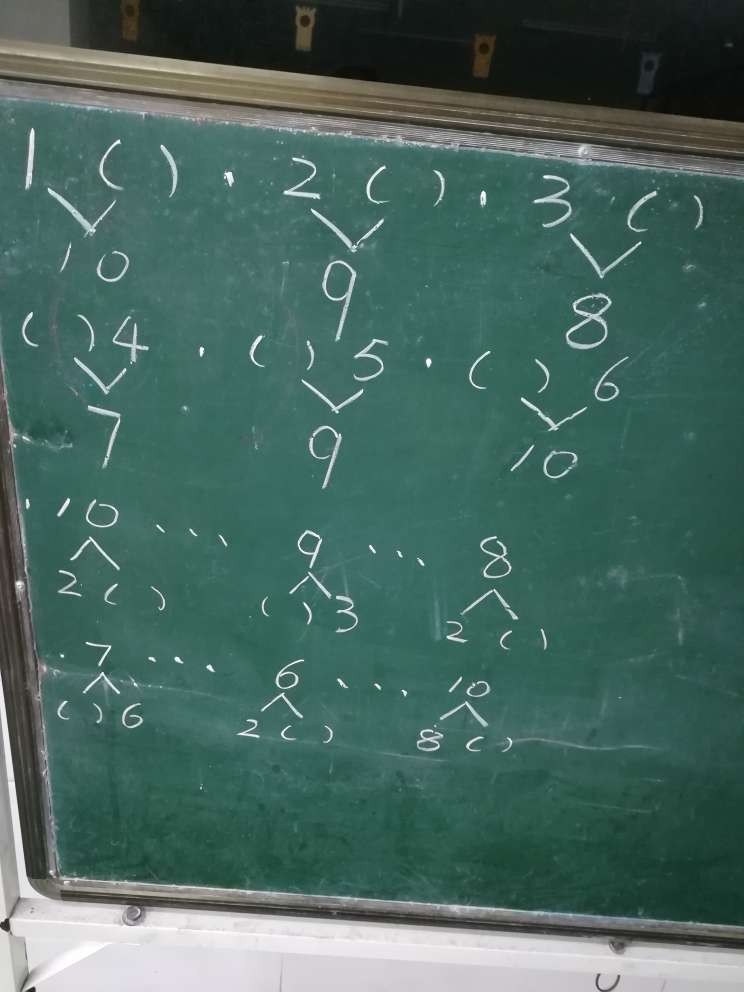 1 ( ) . 2 ( ) . 3 ( )
10 9 8
( ) 4 . ( ) 5 . ( ) 6
7 9 10
. 10 ... 9 ... 8
2 ( ) ( ) 3 2 ( )
. 7 ... 6 ... 10
( ) 6 2 ( ) 8 ( )